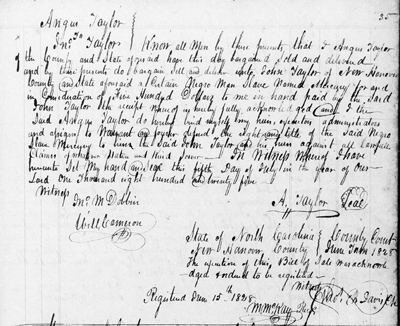 35
Angus Taylor
To
Jno. Taylor Know all Men by these presents that I Angus Taylor
the County and State aforesaid have this day bargained Sold and delivered
and by these presents do bargain Sell and deliver unto John Taylor of New Hanover
County and State aforesaid a Certain Negro Man Slave Named Mercury for and
in Consideration of Five Hundred Dollars to me in hand paid by the Said
John Taylor the receipt whereof is hereby fully acknowledged and I the
Said Angus Taylor do hereby bind myself my heirs executors administrators
and assigns to Warrant and forever defend the right and title of the Said Negro
Slave Mercury to him the Said John Taylor and his heirs against all lawfull
Claims of whatever Nature and Kind Soever In Witness whereof I have
presents Set My hand and seal this fifth Day of July in the year of our
Lord One Thousand eight hundred and twenty five
Witness
Jno. McDobbin A. Taylor Seal
Will Cameron
State of North Carolina County Court
New Hanover County June Term 1828
The execution of this Bill of Sale was acknowle
dged & ordered to be registered
Witness
Davis Clk
Registered June 15th 1828